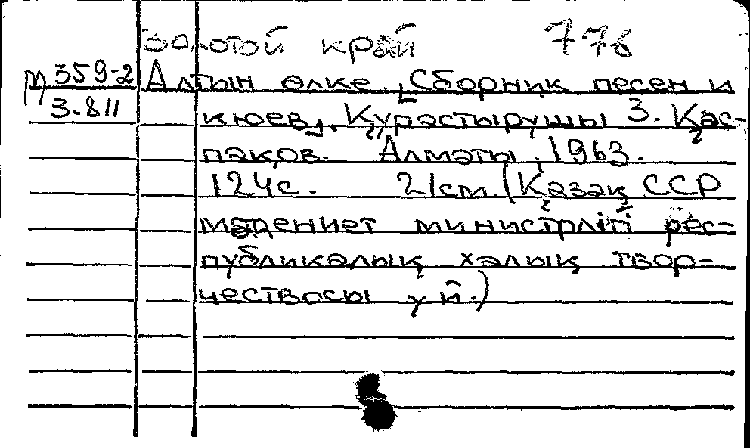 Золотой край 776
М 359-2 Алтын өлке, Сборник песен и
3.811 кюев, Құрастырушы З. Қас-
пақов. Алматы, 1963.
124с. 21см. (Қазақ ССР
мәдениет министрлігі рес-
публикалық халық твор-
чествосы үй.)